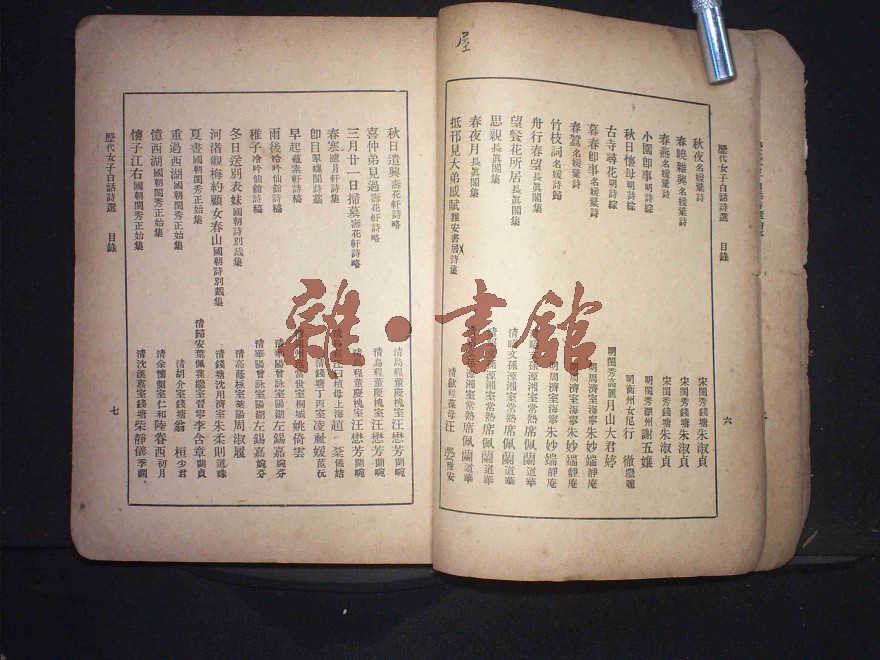 屋
歷代女子白話詩選 目錄 六
秋夜 名媛彙詩 宋閨秀錢塘朱淑貞
春曉雜興 名媛彙詩 宋閨秀錢塘朱淑貞
春燕 名媛彙詩 宋閨秀錢塘朱淑貞
小園即事 明詩綜 明閨秀湖州謝五孃
秋日懷母 明詩綜 明衡州女尼行徹
古寺尋花 明詩綜 明閨秀高麗月山大君婷
暮春即事 名媛彙詩 明周濟室海寧朱妙端靜庵
春蠶 名媛彙詩 明周濟室海寧朱妙端靜庵
竹枝詞 名媛詩歸 明周濟室海寧朱妙端靜庵
舟行春望 長眞閣集 文孫源湘室常熟席佩蘭道華
望餐花所居 長眞閣集 清昭文孫源湘室常熟席佩蘭道華
思親 長眞閣集 孫源湘室常熟席佩蘭道華
春夜月 長眞閣集 源湘室常熟席佩蘭道華
抵邗見大弟感賦 雅安書居詩集 清歙程葆母汪雅安
秋日遣興 壽花軒詩略 清烏程董慶槐室汪懋芳蘭畹
喜仲弟見過 壽花軒詩略 清烏程董慶槐室汪懋芳蘭畹
三月廿一日掃墓 壽花軒詩略 清烏程董慶槐室汪懋芳蘭畹
春寒 濾月軒詩集 母上海趙棻儀姞
即目 翠螺閣詩藁 清錢塘丁丙室凌祉媛茝沅
早起 蘊素軒詩稿 當世室桐城姚倚雲
雨後 冷吟仙館詩稿 清華陽曾詠室陽湖左錫嘉婉芬
稚子 冷吟仙館詩稿 清華陽曾詠室陽湖左錫嘉婉芬
冬日送別表妹 國朝詩別裁集 清高蔭棪室萊陽周淑履
河渚觀梅約顧女春山 國朝詩別裁集 清錢塘沈用濟室朱柔則道珠
夏晝 國朝閨秀正始集 清歸安葉佩蓀繼室晉寧李含章蘭貞
重過西湖 國朝閨秀正始集 清胡介室錢塘翁桓少君
憶西湖 國朝閨秀正始集 清余懷側室仁和陸眘西初月
懷子江右 國朝閨秀正始集 清沈漢嘉室錢塘柴靜儀季嫻
歷代女子白話詩選 目錄 七
雜·書館